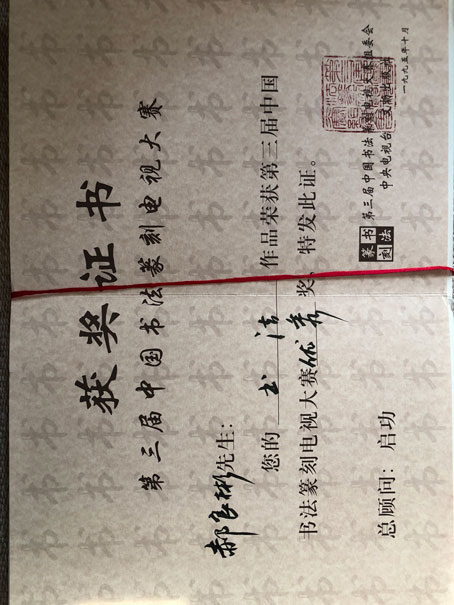 获奖证书
第三届中国书法篆刻电视大赛
郝良彬先生：
您的 书法 作品荣获第三届中国
书法篆刻电视大赛优秀奖、特发此证。
总顾问：启功
书法
篆刻
第三届中国书法篆刻电视大赛组委会
中央电视台
一九九五年十月